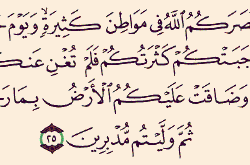 صَرَكُمُ ٱللَّهُ فِى مَوَاطِنَ كَثِيرَةٍۙ وَيَوْمَ
جَبَتْكُمْ كَثْرَتُكُمْ فَلَمْ تُغْنِ عَنكُ
وَضَاقَتْ عَلَيْكُمُ ٱلْأَرْضُ بِمَا رَ
ثُمَّ وَلَّيْتُم مُّدْبِرِينَ ٢٥